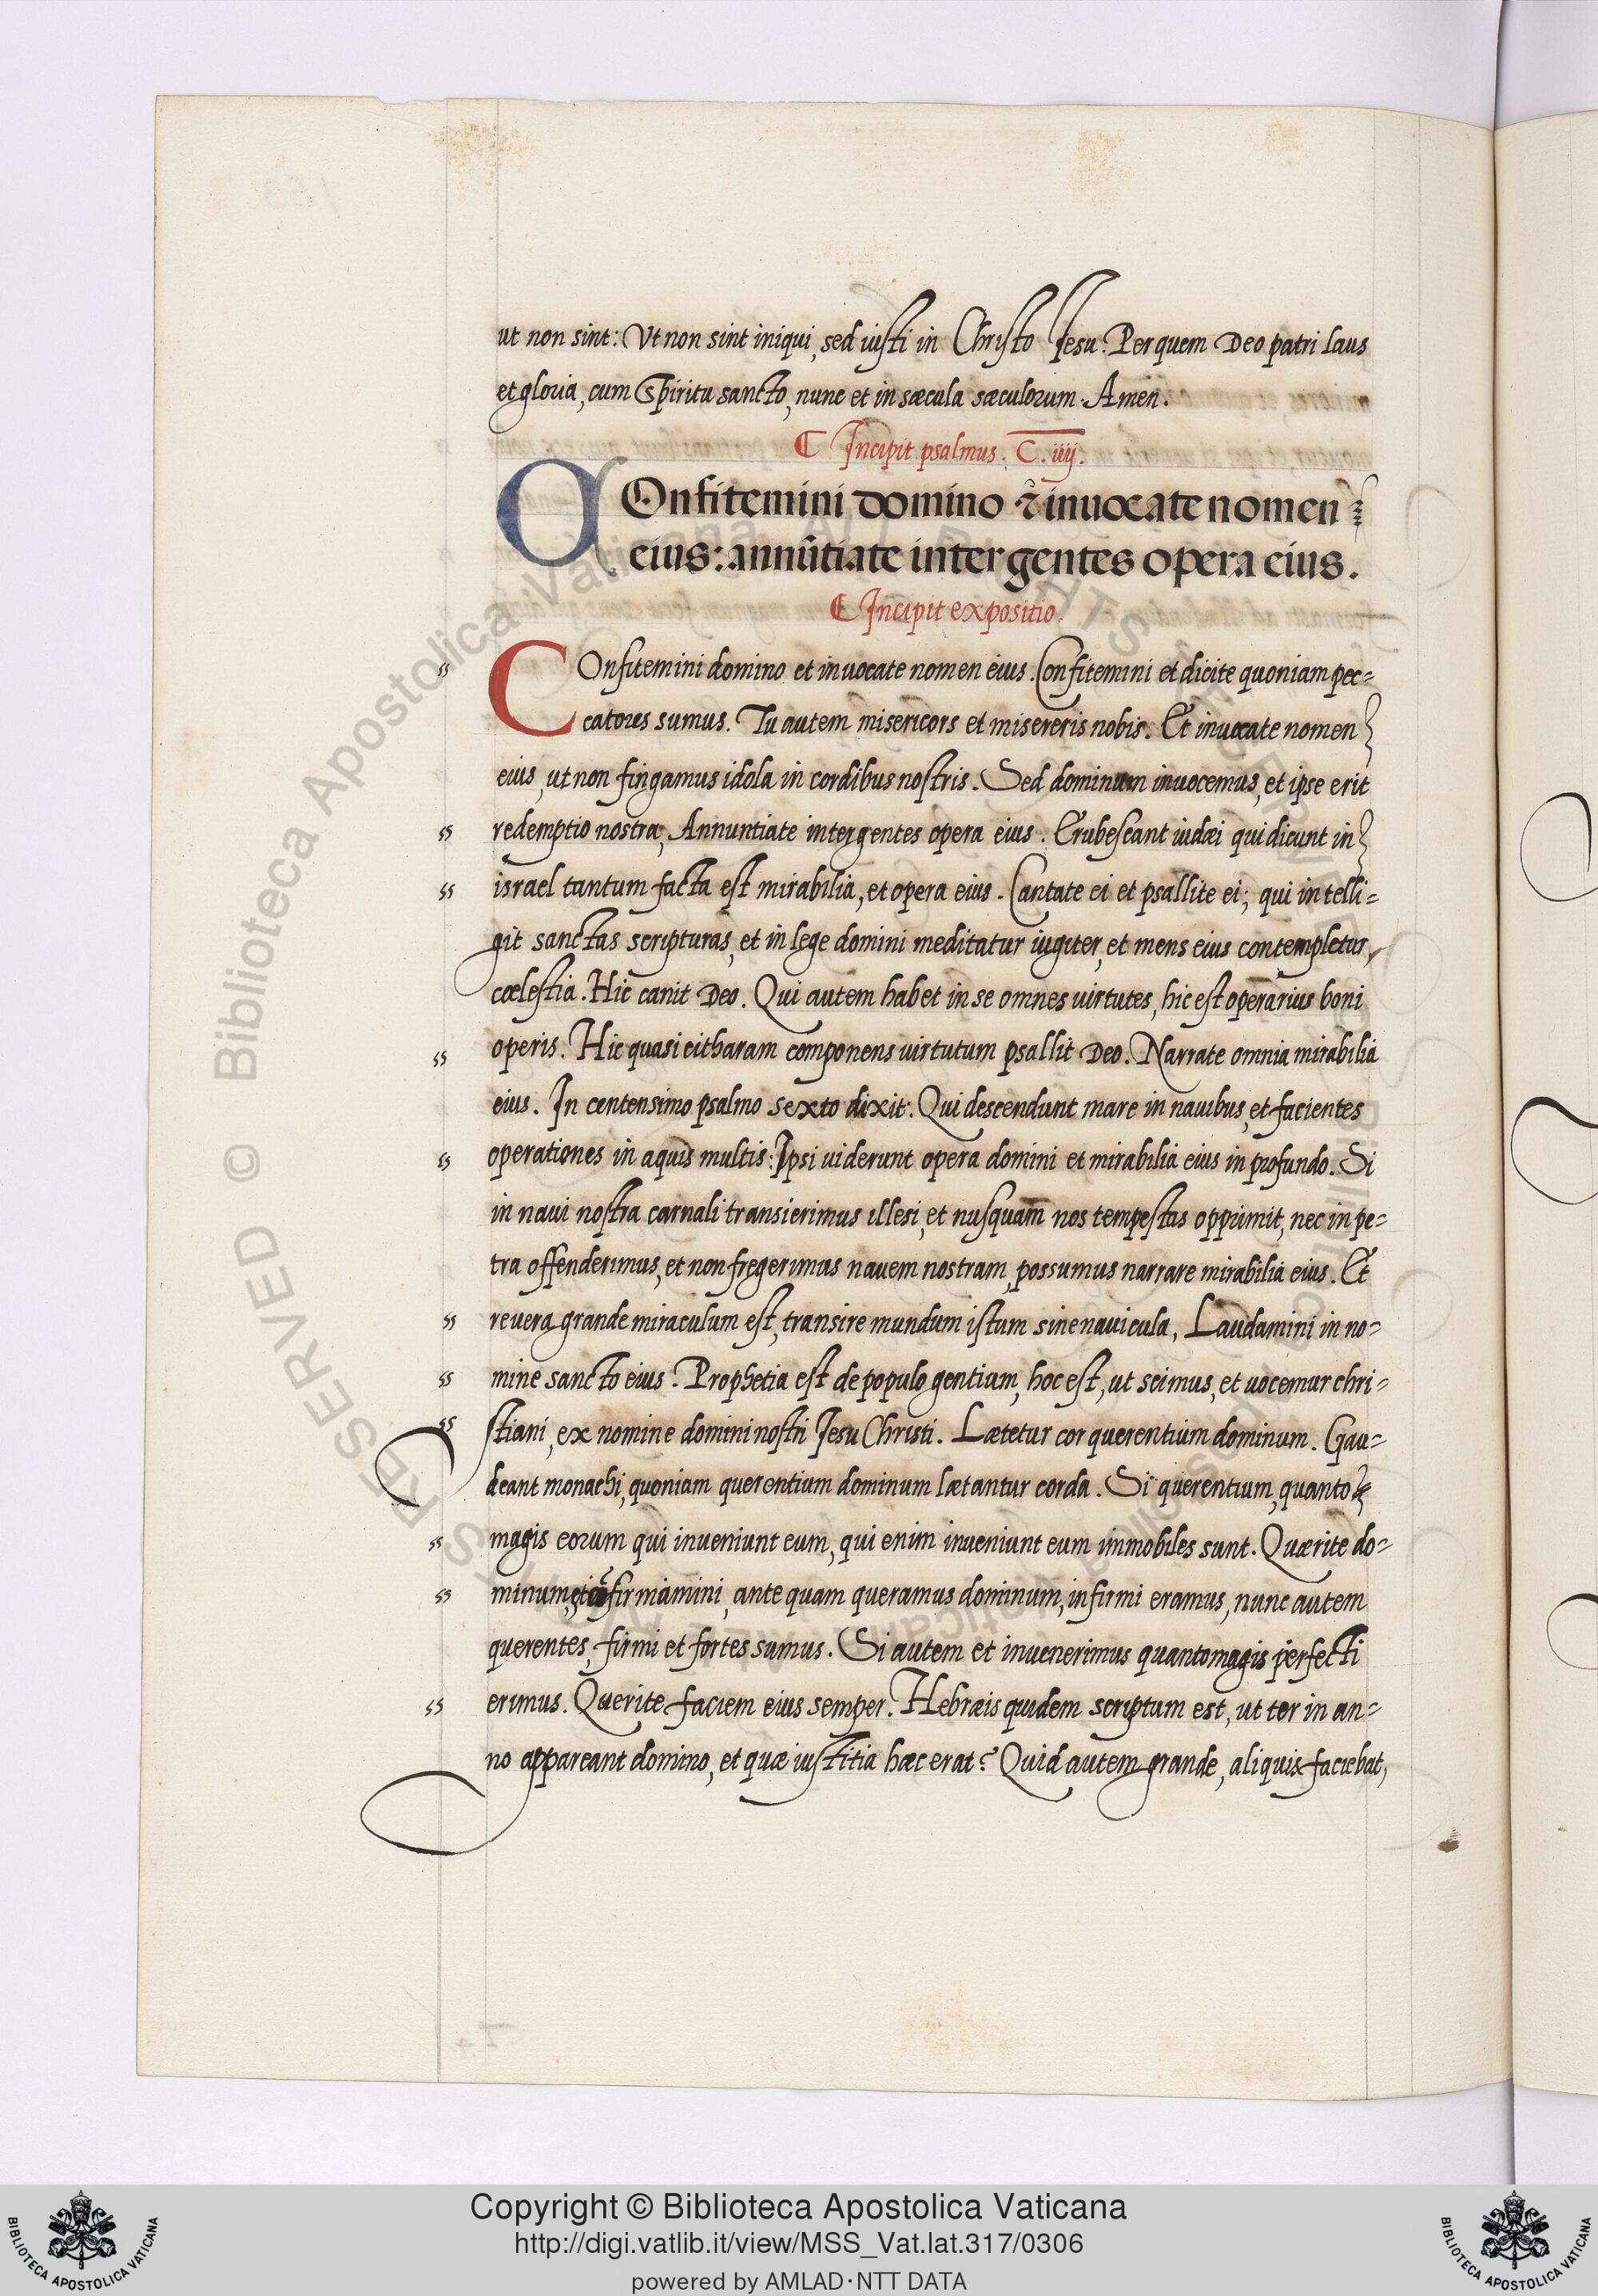 ut non sint: Ut non sint iniqui, sed iusti in Christo Jesu. Per quem Deo patri laus
et gloria, cum Spiritu sancto, nunc et in sæcula sæculorum. Amen.
Incipit psalmus. C. iiij.
COnfitemini domino ⁊ inuocate nomen
eius: annūtiate inter gentes opera eius.
Incipit expositio.
ss COnfitemini domino et inuocate nomen eius. Confitemini et dicite quoniam pec=
catores sumus. Tu autem misericors et misereris nobis. Et inuocate nomen
eius, ut non fingamus idola in cordibus nostris. Sed dominum inuocemus, et ipse erit
ss redemptio nostra, Annuntiate inter gentes opera eius. Erubescant iudæi qui dicunt in
ss israel tantum facta est mirabilia, et opera eius. Cantate ei et psallite ei; qui intelli=
git sanctas scripturas, et in lege domini meditatur iugiter, et mens eius contempletur
cœlestia. Hic canit Deo. Qui autem habet in se omnes uirtutes, hic est operarius boni
ss operis. Hic quasi citharam componens uirtutum psallit Deo. Narrate omnia mirabilia
eius. In centensimo psalmo sexto dixit. Qui descendunt mare in nauibus, et facientes
ss operationes in aquis multis: Ipsi uiderunt opera domini et mirabilia eius in profundo. Si
in naui nostra carnali transierimus illesi, et nusquam nos tempestas opprimit, nec in pe=
tra offenderimus, et non fregerimus nauem nostram, possumus narrare mirabilia eius. Et
ss reuera grande miraculum est, transire mundum istum sine nauicula, Laudamini in no=
ss mine sancto eius. Prophetia est de populo gentium, hoc est, ut scimus, et uocemur chri=
ss stiani, ex nomine domini nostri Jesu Christi. Lætetur cor querentium dominum. Gau=
deant monachi, quoniam querentium dominum lætantur corda. Si querentium, quanto
ss magis eorum qui inueniunt eum, qui enim inueniunt eum immobiles sunt. Quærite do=
ss minum, firmamini, ante quam queramus dominum, infirmi eramus, nunc autem
querentes, firmi et fortes sumus. Si autem et inuenerimus quantomagis perfecti
ss erimus. Querite faciem eius semper. Hebræis quidem scriptum est, ut ter in an=
no appareant domino, et quæ iustitia hæc erat? Quid autem grande, aliquis faciebat,
RESERVED © Biblioteca Apostolica Vaticana
Copyright © Biblioteca Apostolica Vaticana
http://digi.vatlib.it/view/MSS_Vat.lat.317/0306
powered by AMLAD·NTT DATA
BIBLIOTECA APOSTOLICA VATICANA
BIBLIOTECA APOSTOLICA VATICANA